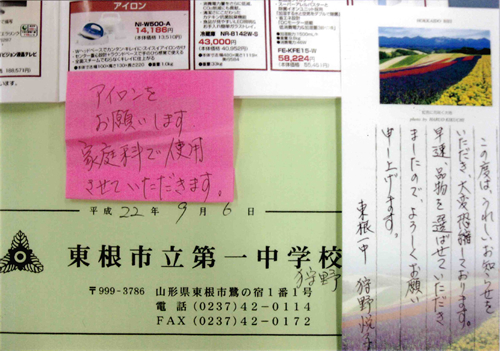 アイロン
NI-W500-A
14,186円
(本体価格 13,510円)
冷蔵庫 NR-B142W-S
43,000円
(本体価格 40,952円)
FE-KFE15-W
58,224円
アイロンを
お願いします
家庭科で使用
させていただきます。
平成 22年 9月 6日
東根市立第一中学校
狩野
〒999-3786 山形県東根市鷺の宿1番1号
電話 (0237)42-0114
FAX (0237)42-0172
この度は、うれしいお知らせを
いただき、大変恐縮しております。
早速、品物を選ばせていただき
ましたので、よろしくお願い
申し上げます。
東根一中 狩野悦子